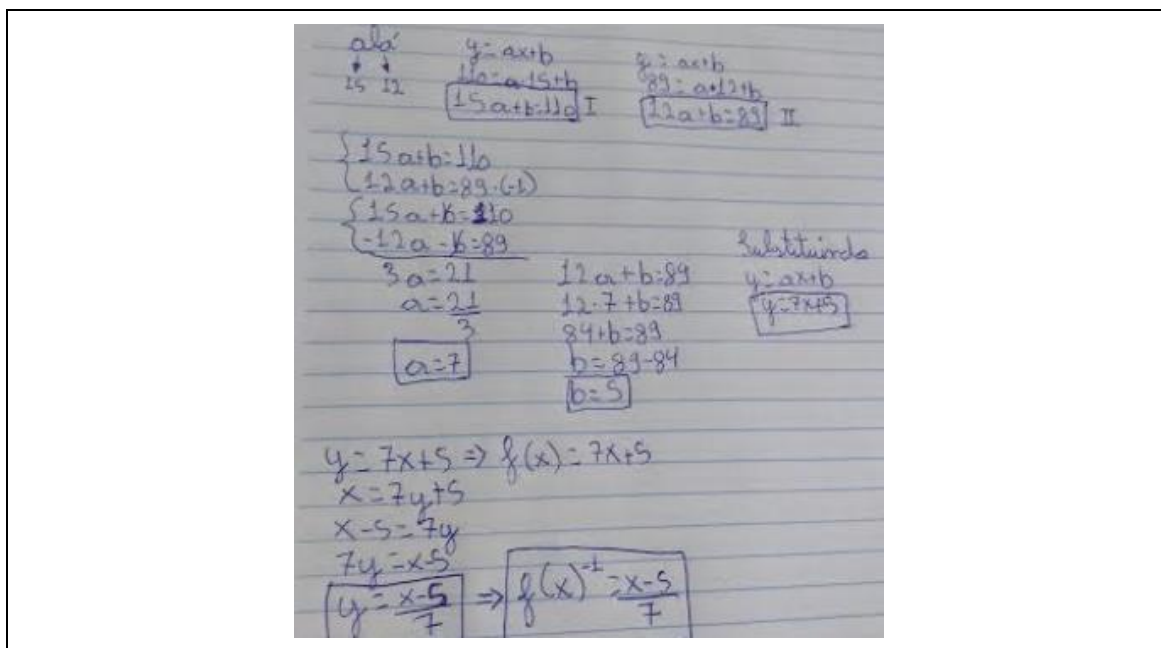 olá
↓ ↓
15 12
y = ax+b
110 = a.15+b
15a+b=110 I
y = ax+b
89 = a.12+b
12a+b=89 II
{15a+b=110
{12a+b=89.(-1)
{15a+b=110
{-12a-b=89
3a=21
a=21/3
a=7
12a+b=89
12.7+b=89
84+b=89
b=89-84
b=5
Substituindo
y=ax+b
y=7x+5
y = 7x+5 ⇒ f(x) = 7x+5
x = 7y+5
x-5=7y
7y=x-5
y = x-5/7 ⇒ f(x)^-1 = x-5/7